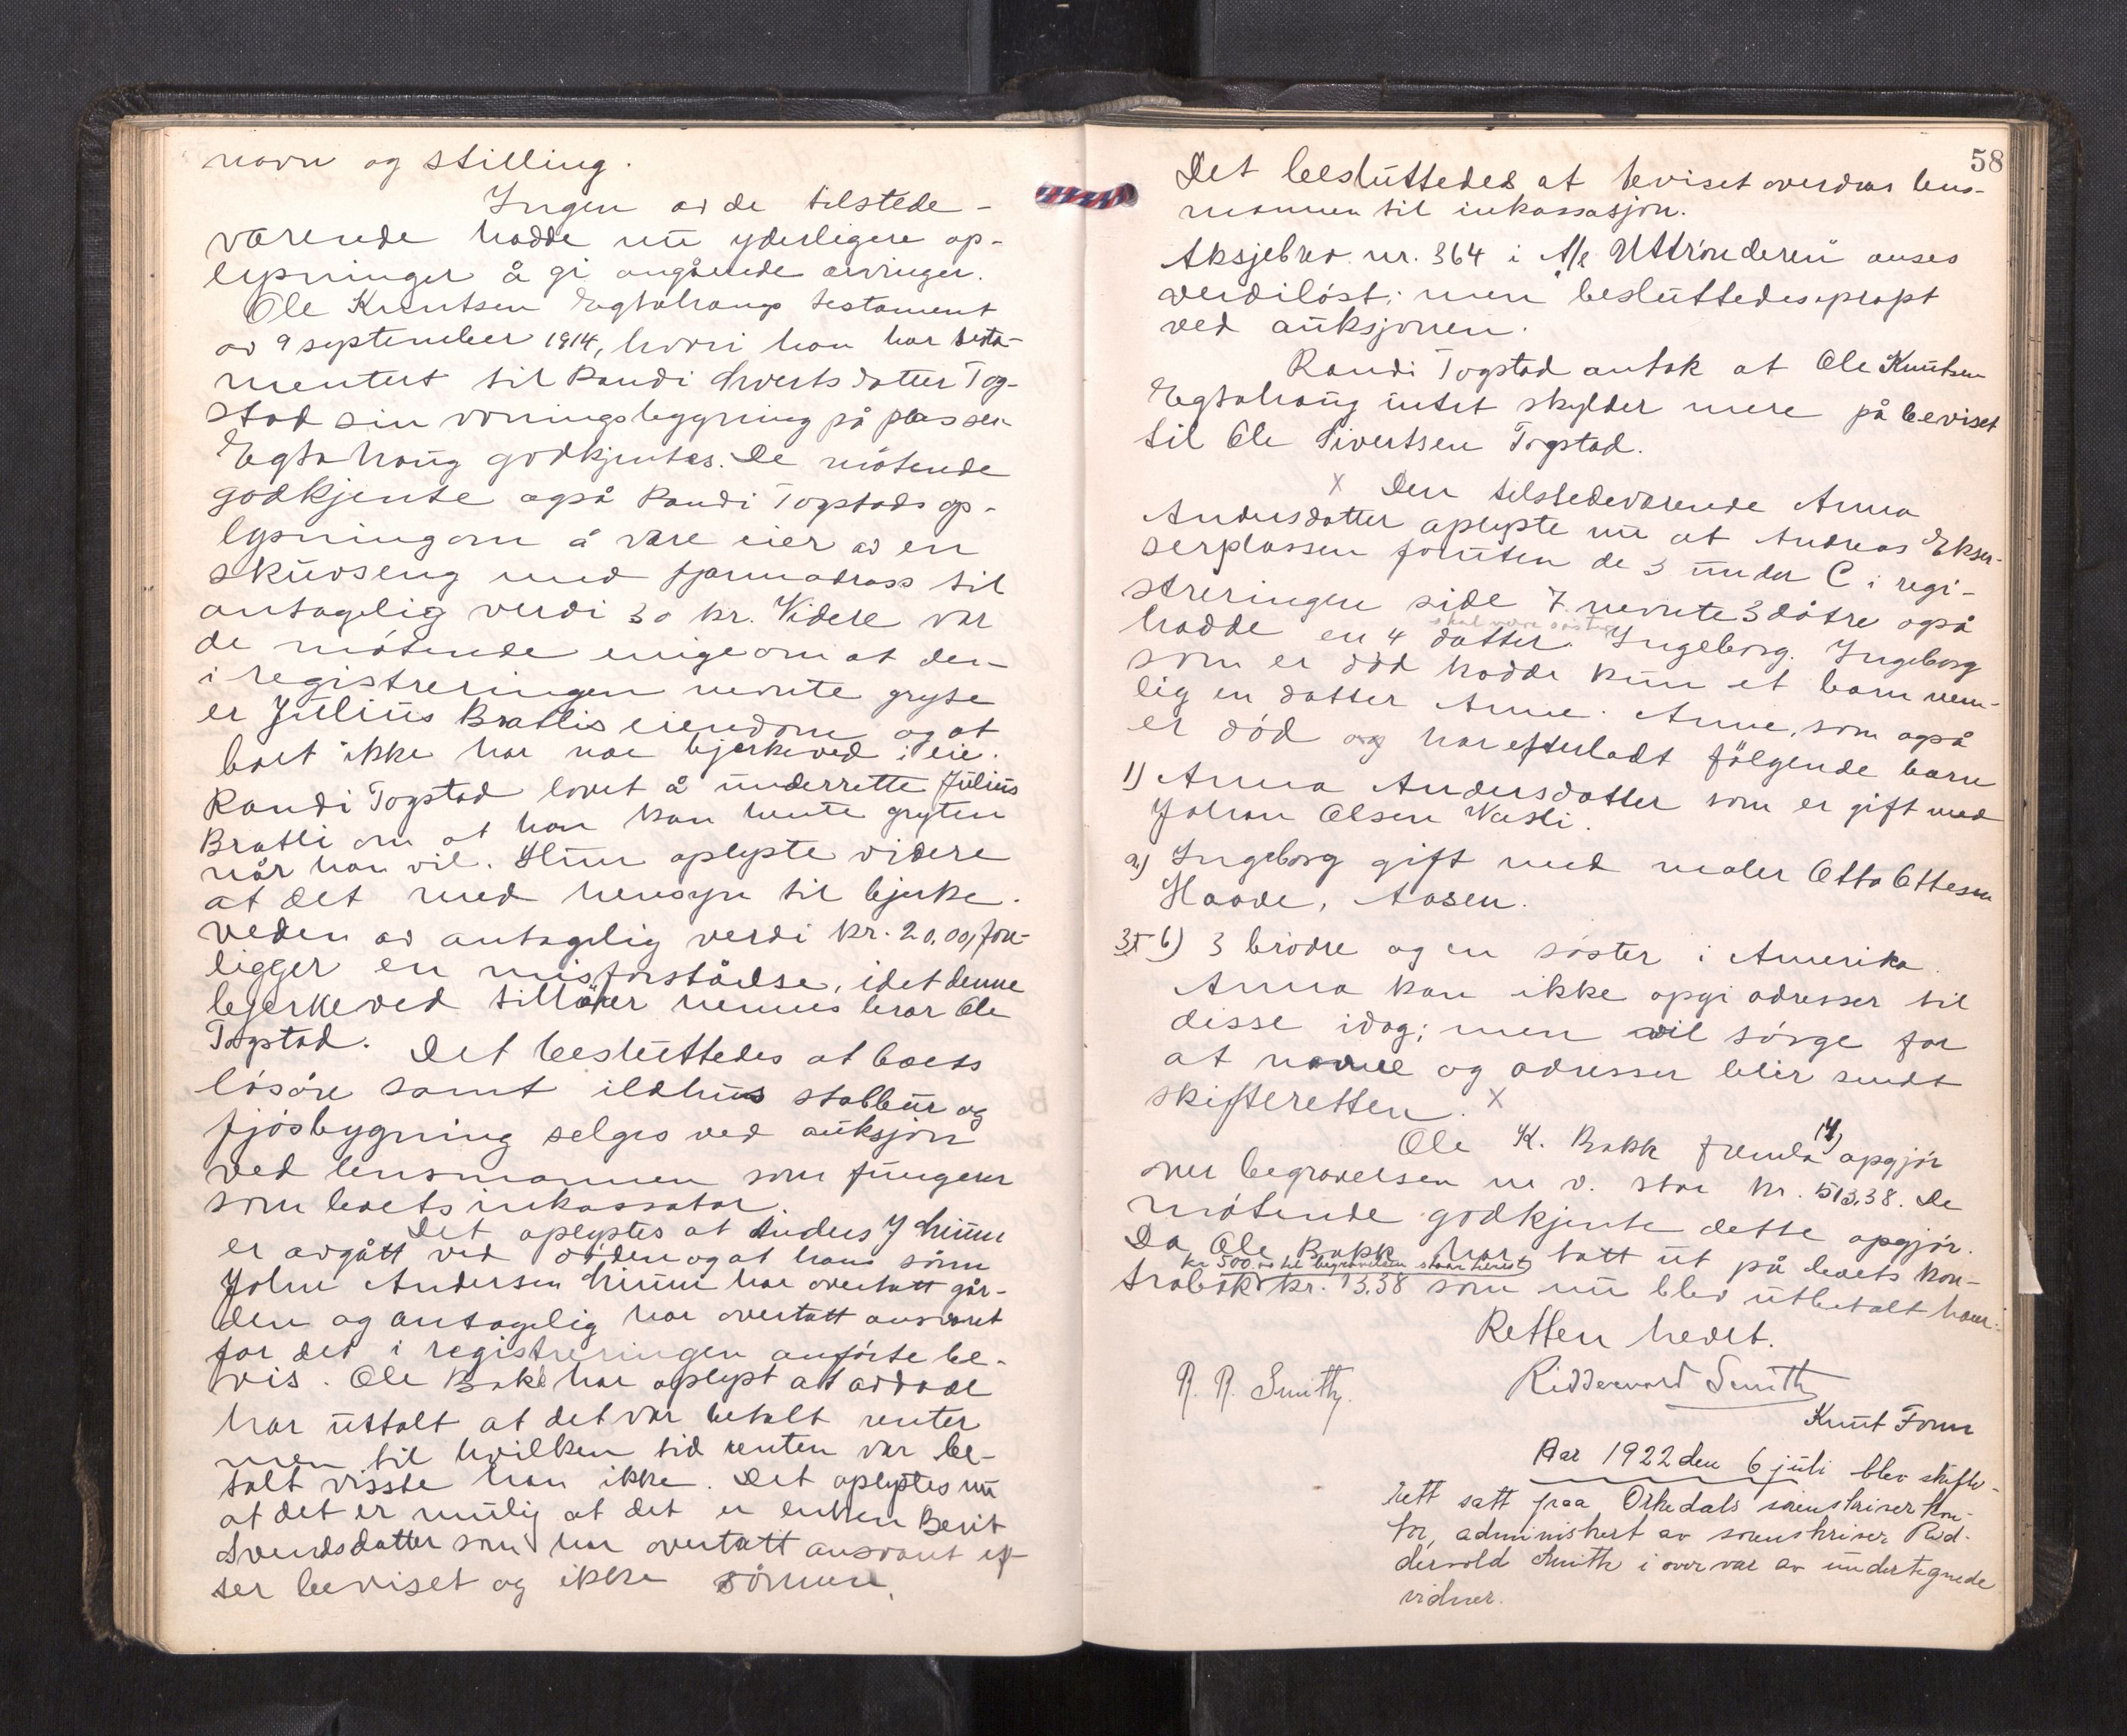 navn og stilling.
Ingen av de tilstede-
værende hadde nu yderligere op-
lysninger å gi angående arvinger.
Ole Knutsen Egtahaugs testament
av 9 september 1914, hvori han har testa-
mentert til Randi Sivertsdatter Tog-
stad sin våningsbygning på plassen
Egtahaug godkjentes. De møtende
godkjente også Randi Togstads op-
lysning om å være eier av en
skuvseng med fjærmadrass til
antagelig verdi 30 kr. Videre var
de møtende enige om at den
i registreringen nevnte gryte
er Julius Brattlis eiendom og at
boet ikke har noe bjerkeved i eie.
Randi Togstad lovet å underrette Julius
Brattli om at han kan hente gryten
når han vil. Hun oplyste videre
at det med hensyn til bjerke-
veden av antagelig verdi kr. 20,00, fore-
ligger en misforståelse, idet denne
bjerkeved tilhører hennes bror Ole
Togstad. Det besluttedes at boets
løsøre samt ildhus stabbur og
fjøsbygning selges ved auksjon
ved lensmannen som fungerer
som boets inkassator.
Det oplystes at Anders J
er avgått ved døden og at hans sønn
John Andersen har overtatt går-
den og antagelig har overtatt ansvaret
for det i registreringen anførte be-
vis. Ole Bakk har oplyst at avdøde
har uttalt at det var betalt renter
men til hvilken tid renten var be-
talt visste han ikke. Det oplystes nu
at det er mulig at det er enken Berit
Svendsdatter som har overtatt ansvaret ef-
ter beviset og ikke sønnen.
58
Det besluttedes at beviset overdras lens-
mannen til inkassasjon.
Aksjebrev nr. 364 i A/s "Uttrønderen" anses
verdiløst; men besluttedes opropt
ved auksjonen.
Randi Togstad antok at Ole Knutsen
Egtahaug intet skylder mere på beviset
til Ole Sivertsen Togstad.
x Den tilstedeværende Anna
Andersdatter oplyste nu at Andreas Ekser-
serplassen foruten de 3 under C i regi-
streringen side 7 nevnte 3 døtre også
skal være søster
hadde en 4 datter Ingeborg. Ingeborg
som er død hadde kun et barn nem-
lig en datter Anne. Anne, som også
er død og har efterladt følgende barn
1) Anna Andersdatter som er gift med
Johan Olsen Vasli.
2) Ingeborg gift med maler Otto Ottesen
Haave, Aasen.
3-6) 3 brødre og en søster i Amerika.
Anna kan ikke opgi adresser til
disse idag; men vil sørge for
at navne og adresser blir sendt
skifteretten. x
Ole K. Bakk fremla 14) opgjør
over begravelsen m v. stor kr. 513,38. De
møtende godkjente dette opgjør.
Da Ole Bakk har tatt ut på boets kon-
kr 500.00 til begravelsen
trabok kr. 13,38 som nu blev utbetalt ham.
Retten hevet.
R. R. Smith. Riddervold Smith
Knut Fonn
Aar 1922 den 6 juli blev skifte-
rett satt paa Orkedals sorenskriverkon-
tor, administrert av sorenskriver Rid-
dervold Smith i overvær av undertegnede
vidner.